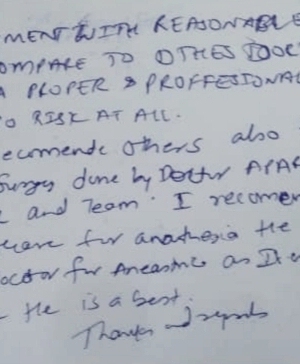 MENT WITH REASONABLE
OMPARE TO OTHES DOC
A PROPER & PROFFESIONAL
O RISK AT ALL.
ecommende others also
Surgey done by Doctor APAR
and Team. I recomen
for anasthesia He
octor for Aneasthic as
He is a best.
Thanks